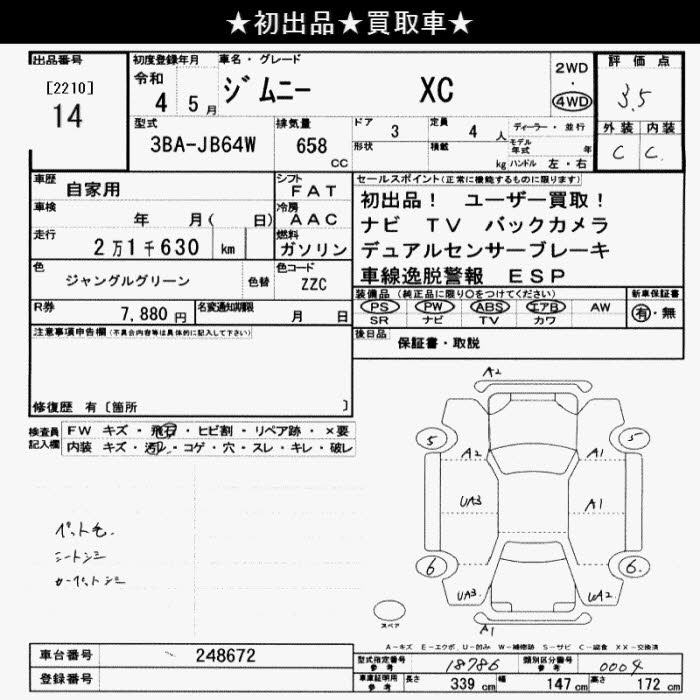 ★初出品★買取車★
出品番号
[2210]
14
初度登録年月
令和
4 5月
車名・グレード
ジムニー XC
2WD
4WD
評価点
3.5
外装 内装
C C
型式
3BA-JB64W
排気量
658
CC
ドア 3
定員 4人
形状
積載 kg
ディーラー・並行
モデル年式 年
ハンドル 左・右
車歴 自家用
シフト FAT
車検 年 月( 日)
冷房 AAC
走行 2万1千630 km
燃料 ガソリン
色 ジャングルグリーン
色替
色コード ZZC
R券 7,880円
名変通知期限 月 日
セールスポイント(正常に機能するものに限ります)
初出品! ユーザー買取!
ナビ TV バックカメラ
デュアルセンサーブレーキ
車線逸脱警報 ESP
装備品(純正品に限り○をつけてください)
PS PW ABS エアB AW
SR ナビ TV カワ
新車保証書
有・無
後日品 保証書・取説
注意事項申告欄(不具合内容等は具体的に記入して下さい)
修復歴 有[箇所 ]
検査員記入欄
FW キズ・飛石・ヒビ割・リペア跡・×要
内装 キズ・汚れ・コゲ・穴・スレ・キレ・破レ
ペット毛.
シートシミ
カーペットシミ
A2
5 5
A2 A1
UA3 A1
6 6.
UA3 UA2
A1
スペア
A-キズ E-エクボ U-凹み W-補修跡 S-サビ C-腐食 XX-交換済
車台番号 248672
登録番号
型式指定番号 参考 18786
類別区分番号 参考 0004
車庫証明用 参考
長さ 339 cm
幅 147 cm
高さ 172 cm